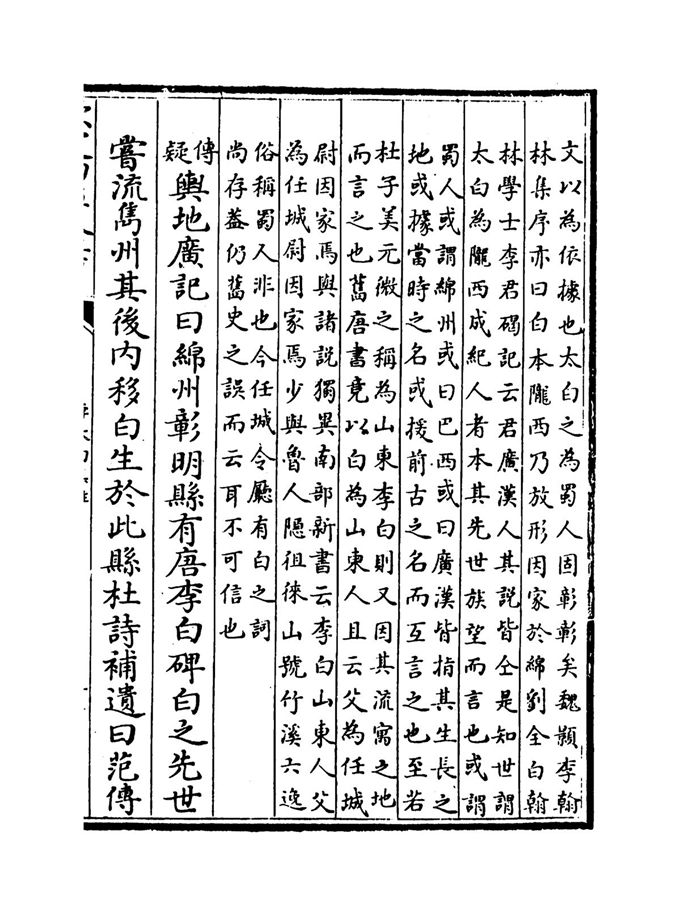 文以為依據也太白之為蜀人固彰彰矣魏顥李翰
林集序亦曰白本隴西乃放形因家於綿劉全白翰
林學士李君碣記云君廣漢人其說皆仝是知世謂
太白為隴西成紀人者本其先世族望而言也或謂
蜀人或謂綿州或曰巴西或曰廣漢皆指其生長之
地或據當時之名或援前古之名而互言之也至若
杜子美元微之稱為山東李白則又因其流寓之地
而言之也舊唐書竟以白為山東人且云父為任城
尉因家焉與諸說獨異南部新書云李白山東人父
為任城尉因家焉少與魯人隱徂徠山號竹溪六逸
俗稱蜀人非也今任城令廳有白之詞
尚存葢仍舊史之誤而云耳不可信也
傳疑輿地廣記曰綿州彰明縣有唐李白碑白之先世
嘗流雋州其後内移白生於此縣杜詩補遺曰范傳